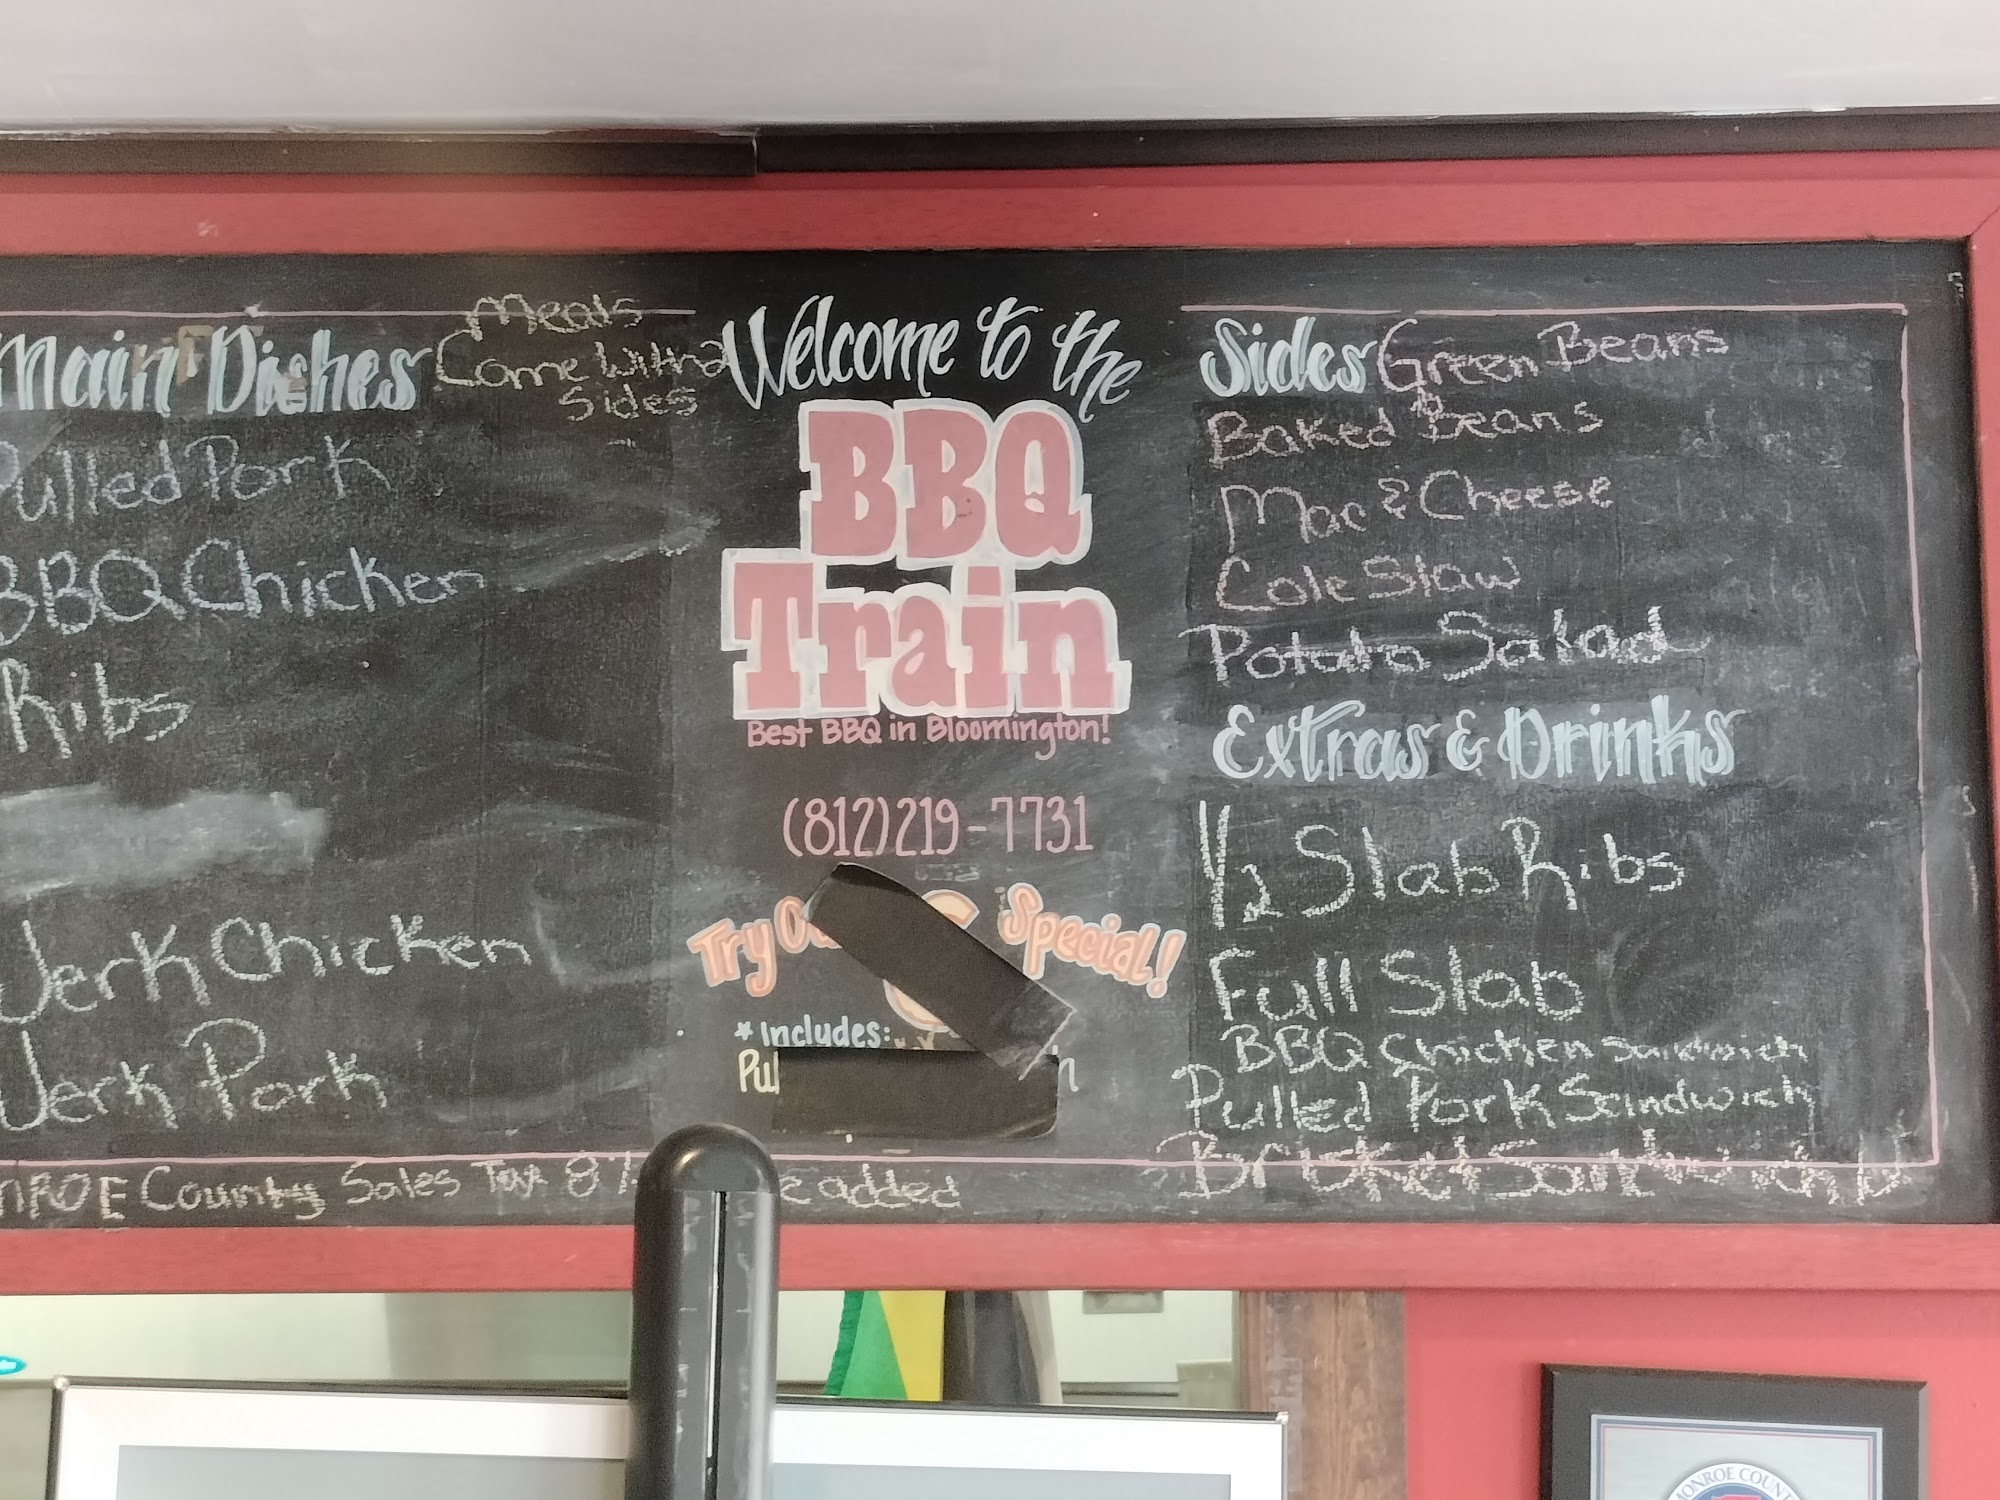 Main Dishes
Meals
Come With 2
Sides
Pulled Pork
BBQ Chicken
Ribs
Jerk Chicken
Jerk Pork
Welcome to the
BBQ
Train
Best BBQ in Bloomington!
(812)219-7731
Try Special!
* Includes:
Sides Green Beans
Baked Beans
Mac & Cheese
Cole Slaw
Potato Salad
Extras & Drinks
1/2 Slab Ribs
Full Slab
BBQ Chicken Sandwich
Pulled Pork Sandwich
Brisket Sandwich
County Sales Tax 8% added
MONROE COUNT